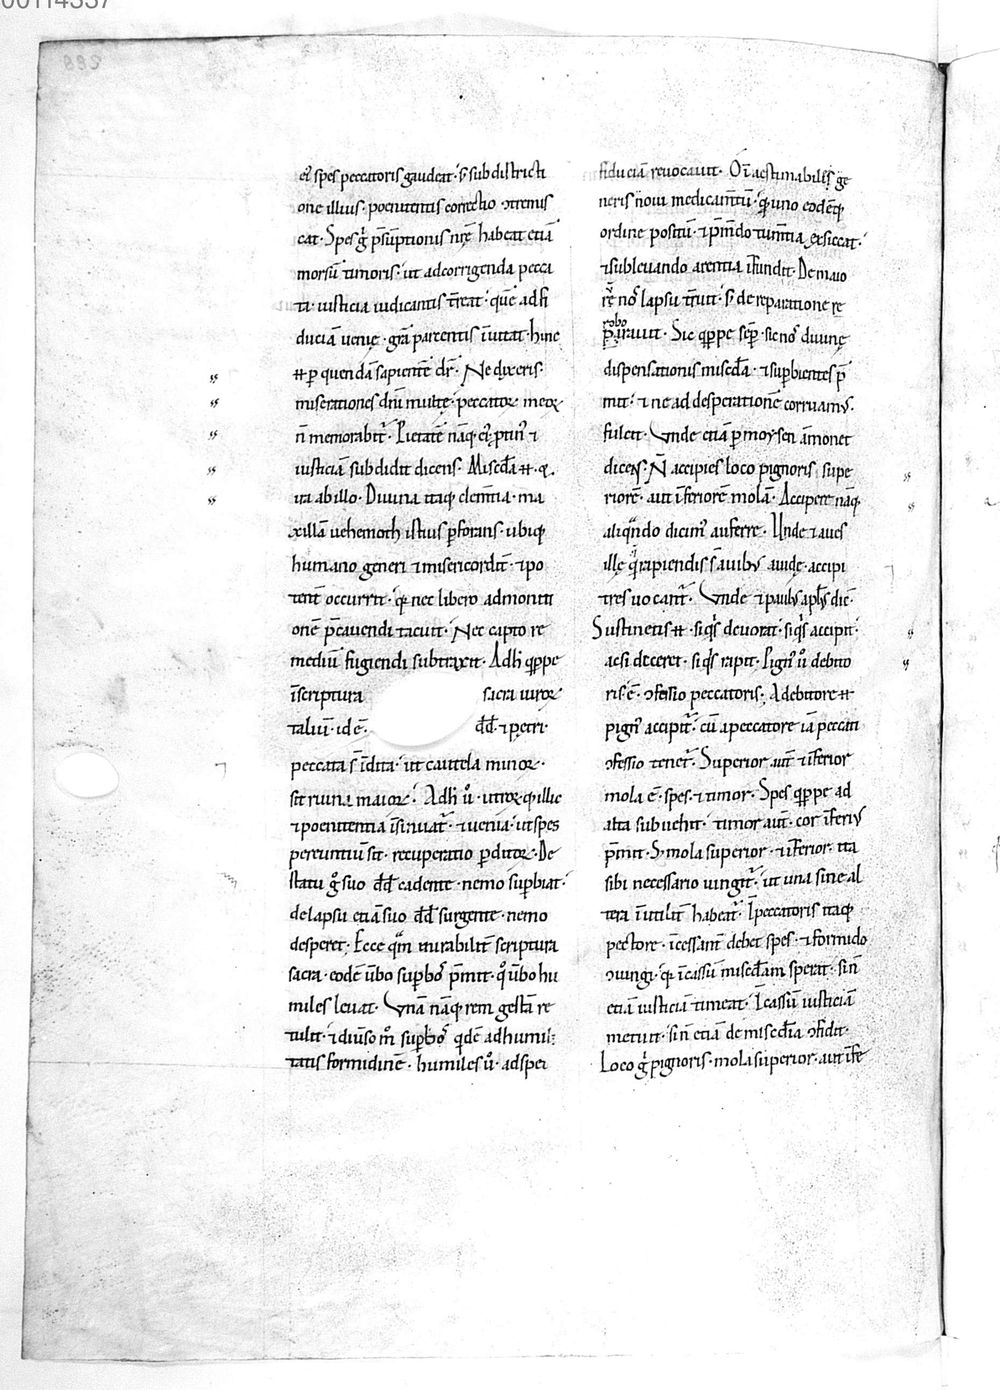 ei spes peccatoris gaudeat· s̄ sub districti
one illius· poenitentis correctio ꝯtremis
cat· Spes g̊ p̄sūptionis nr̄ę habeat etiā
morsū timoris· ut ad corrigenda pecca
ta· iusticia iudicantis t̄reat· que ad fi
duciā uenię· gr̄a parcentis īuitat· hinc
ꝑ quendā sapientē dr̄· Ne dixeris·
miserationes dn̄i multę· peccatoꝝ meoꝝ
n̄ memorabit᷑· Pietatē nāq· ei ptin᷑ ⁊
iusticiā subdidit dicens· Misc̄dīa
ira ab illo· Diuina itaq clem̄tia· ma
xillā uehemoth istius ꝑforans· ubiq
humano generi ⁊ misericordit᷑· ⁊ po
tent᷑ occurrit· q nec libero admoniti
onē p̄cauendi tacuit· Nec capto re
mediū fugiendi subtraxit· Ad h̄ qppe
īscriptura sacra uiroꝝ
taliū· id ē· dd̄· ⁊ petri·
peccata s̄ īdita· ut cautela minoꝝ·
sit ruina maioꝝ· Ad h̄ ū· utroꝝq illic
⁊ poenitentia īsinuat᷑· ⁊ uenia· ut spes
pereuntiū sit· recuperatio ꝑditoꝝ· De
statu g̊ suo dd̄ cadente· nemo supbiat·
de lapsu etiā suo dd̄ surgente· nemo
desperet· Ecce qm̄ mirabilit᷑ scriptura
sacra· eodē ūbo supbos p̄mit· q̊ ūbo hu
miles leuat· Vnā nāq rem gestā re
tulit· ⁊ diuso m̊ supbos qidē ad humili
tatis formidinē· humiles ū· ad spei
fiduciā reuocauit· O īaestimabilis ge
neris noui medicam̄tū· q uno eodēq
ordine positū· ⁊ p̄m̄do tum̄tia exsiccat·
⁊ subleuando arentia īfundit· De maio
rē nos̄ lapsu t̄ruit· s̄ de reparatione re
robo
p̄arauit· Sic qppe sēp· sic nos̄ diuinę
dispensationis misc̄dīa· ⁊ supbientes p̄
mit· ⁊ ne ad desperationē corruam᷒·
fulcit· Vnde etiā ꝑ moysen āmonet
dicens· N̄ accipies loco pignoris supe
riorē· aut īferiorē molā· Accipere nāq
aliqndo dicim᷒ auferre· Unde ⁊ aues
illę q̄ rapiendis s̄ auib᷒ auidę· accipi
tres uocant᷑· Vnde ⁊ paulus apl̄s dic̄·
Sustinetis si q̊s deuorat· si q̊s accipit·
acsi diceret· si q̊s rapit· Pign᷒ ū debito
ris ē· ꝯfessio peccatoris· A debitore
pign᷒ accipit᷑· cū a peccatore iā peccati
ꝯfessio tenet᷑· Superior aut̄ ⁊ īferior
mola ē· spes· ⁊ timor· Spes qppe ad
alta subuehit· timor aut̄· cor īferi᷒
p̄mit· S; mola superior· ⁊ īferior· ita
sibi necessario iungit᷑· ut una sine al
tera īutilit᷑ habeat᷑· I peccatoris itaq
pectore· īcessant᷑ debet spes· ⁊ formido
ꝯiungi· q īcassū misc̄dīam sperat· si n̄
etiā iusticiā timeat· Īcassū iusticiā
metuit· si n̄ etiā de misc̄dīa ꝯfidit·
Loco g̊ pignoris· mola superior· aut īfe